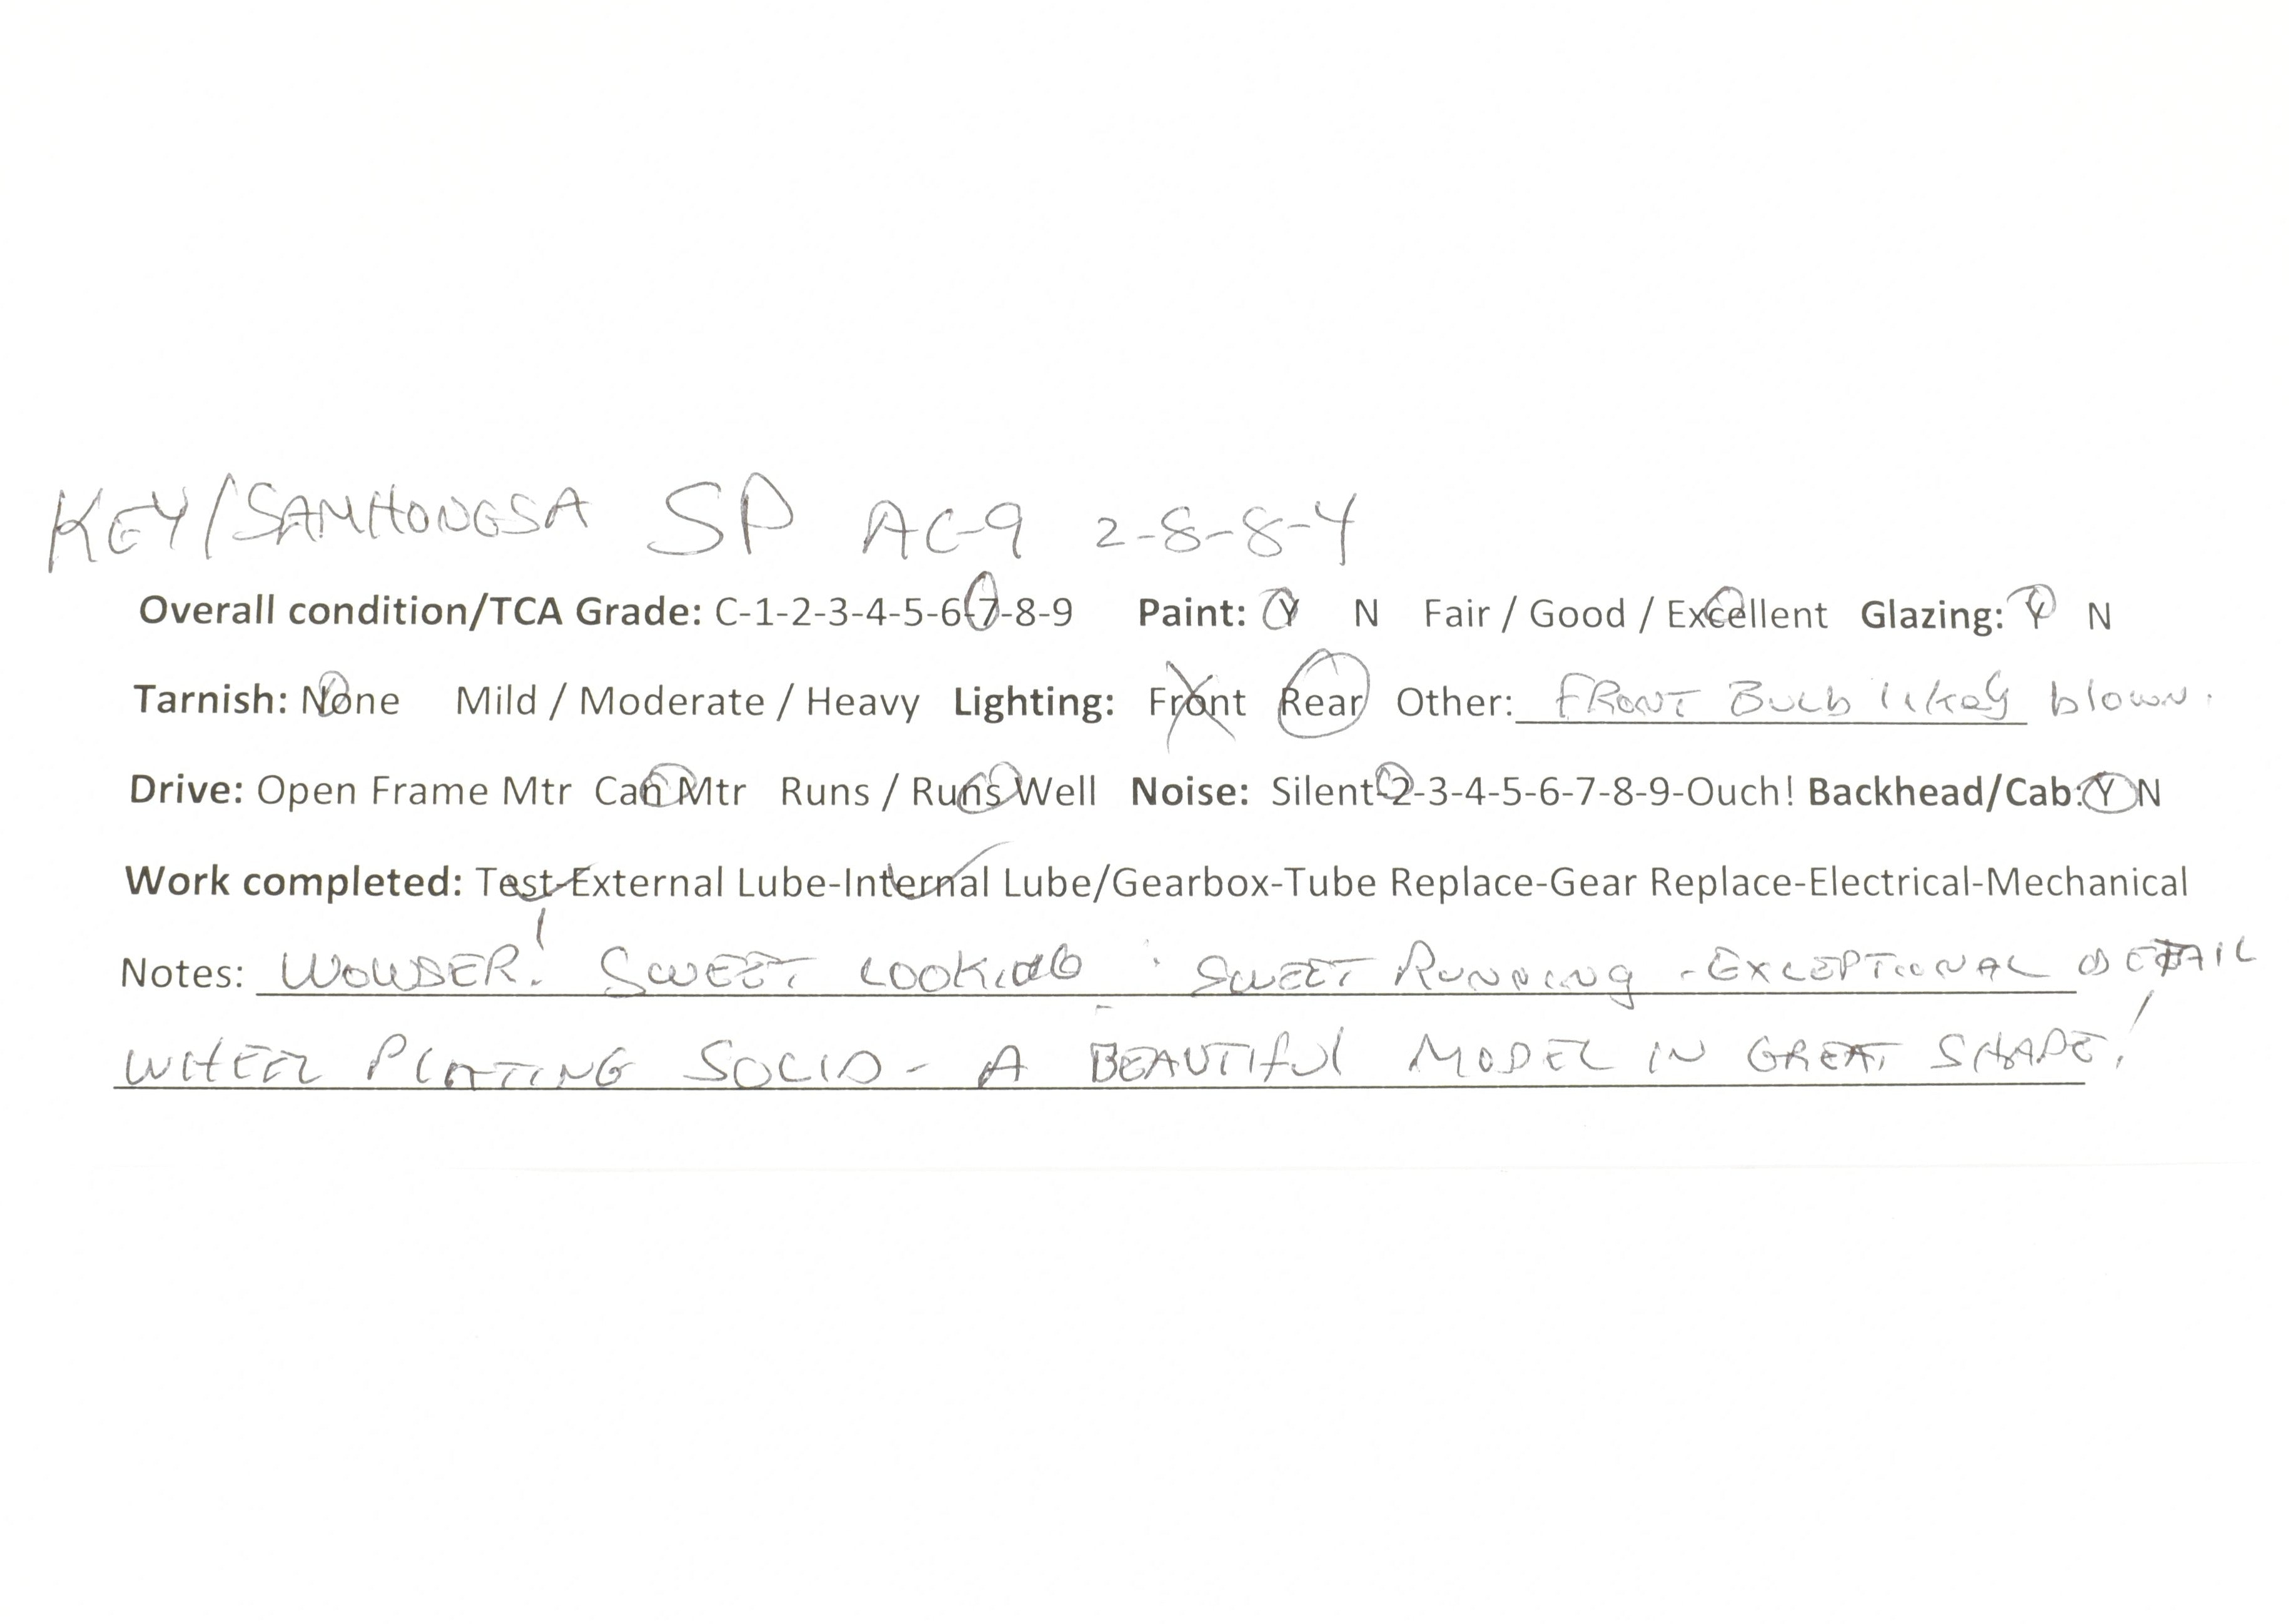 KEY/SAMHONGSA SP AC-9 2-8-8-4
Overall condition/TCA Grade: C-1-2-3-4-5-6-7-8-9 Paint: Y N Fair / Good / Excellent Glazing: Y N
Tarnish: None Mild / Moderate / Heavy Lighting: Front Rear Other: FRONT BULB likely blown.
Drive: Open Frame Mtr Can Mtr Runs / Runs Well Noise: Silent-2-3-4-5-6-7-8-9-Ouch! Backhead/Cab: Y N
Work completed: Test-External Lube-Internal Lube/Gearbox-Tube Replace-Gear Replace-Electrical-Mechanical
Notes: WOWSER! SWEET LOOKING - SWEET RUNNING - EXCEPTIONAL DETAIL
WHEEL PLATING SOLID - A BEAUTIFUL MODEL IN GREAT SHAPE!